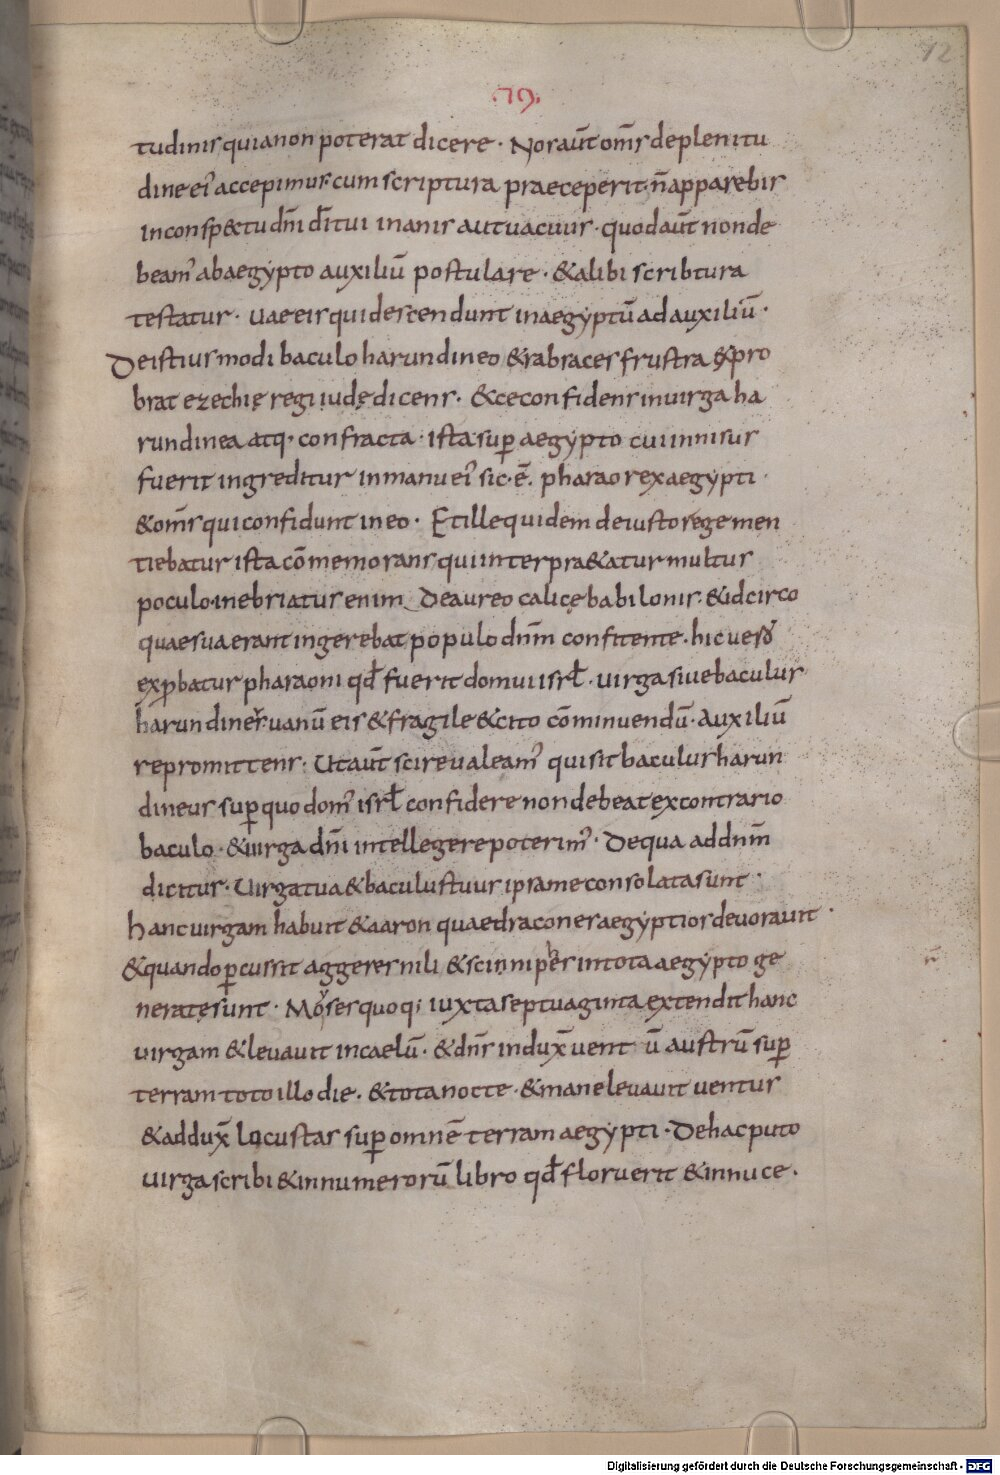 12
·79·
tudinis quia non poterat dicere · Nos aut̄ om̄s de plenitu
dine ei᾽ accepimus cum scriptura praeceperit n̄ apparebis
in conspectu dn̄i dī tui inanis aut vacuus · quod aut̄ non de
beam᾽ ab aegypto auxiliū postulare · & alibi scribtura
testatur · uae eis qui descendunt in aegyptū ad auxiliū ·
De istius modi baculo harundineo & rabsaces frustra expro
brat ezechię regi iudę dicens · &ce confidens in uirga ha
rundinea atq; confracta · ista sup aegypto cui innisus
fuerit ingreditur in manu ei᾽ sic ē · pharao rex aegypti ·
& om̄s qui confidunt in eo · Et ille quidem de iusto rege men
tiebatur ista cōmemorans qui interpra&atur multus
poculo · inebriatus enim De aureo calice babilonis · & idcirco
quae sua erant ingerebat populo dn̄m confitente · hic uero
exp̱batur pharaoni qđ fuerit domui isrł · uirga siue baculus
harundines · uanū eis & fragile & cito cōminuendū · Auxiliū
repromittens · Ut aut̄ scire ualeam᾽ qui sit baculus harun
dineus sup quo dom᾽ isrł confidere non debeat ex contrario
baculo · & uirga dn̄i intellegere poterim᾽ · De qua ad dn̄m
dicitur · Uirga tua & baculus tuus ipsa me consolata sunt ·
hanc uirgam habuit & aaron quae dracones aegyptios deuorauit ·
& quando p̱cussit aggeres nili & scinniphes in tota aegypto ge
neratę sunt · Moyses quoq; iuxta septuaginta extendit hanc
uirgam & leuauit in caelū · & dn̄s indux̄ uent ū austrū sup
terram toto illo die · & tota nocte · & mane leuauit ventus
& addux̄ locustas sup omnē terram aegypti · De hac puto
uirga scribi & in numerorū libro qđ floruerit & in nuce ·
Digitalisierung gefördert durch die Deutsche Forschungsgemeinschaft - DFG